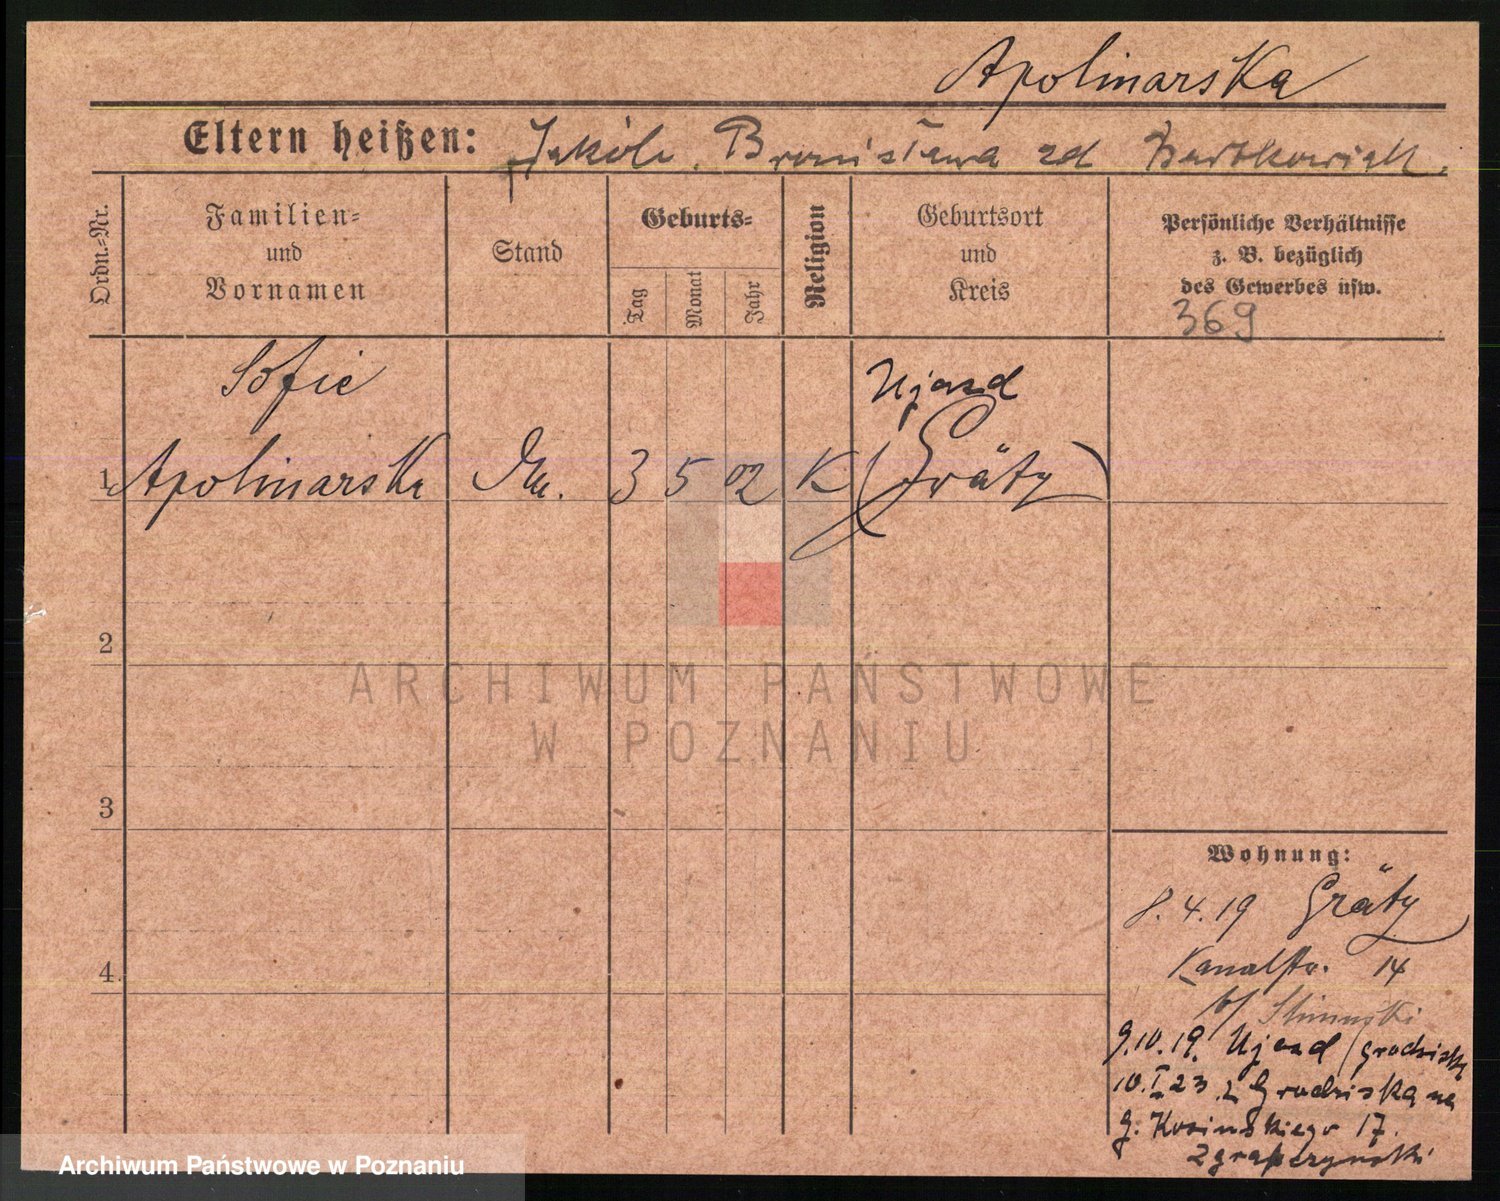 Apolinarska
Eltern heißen: Jakób Bronisława zd Bartkowiak.
Ordn.=Nr.
Familien=
und
Vornamen
Stand
Geburts=
Tag
Monat
Jahr
Religion
Geburtsort
und
Kreis
Persönliche Verhältnisse
z. B. bezüglich
des Gewerbes usw.
369
Sofie
Ujazd
1 Apolinarska 3 5 02 K (Grätz)
2
ARCHIWUM PAŃSTWOWE
W POZNANIU
3
Wohnung:
8.4.19 Grätz
Kanalstr. 14
4.
b/
9.10.19. Ujazd /Grodzisk
10.I.23 z Grodziska na
g. Kosińskiego 17.
Archiwum Państwowe w Poznaniu